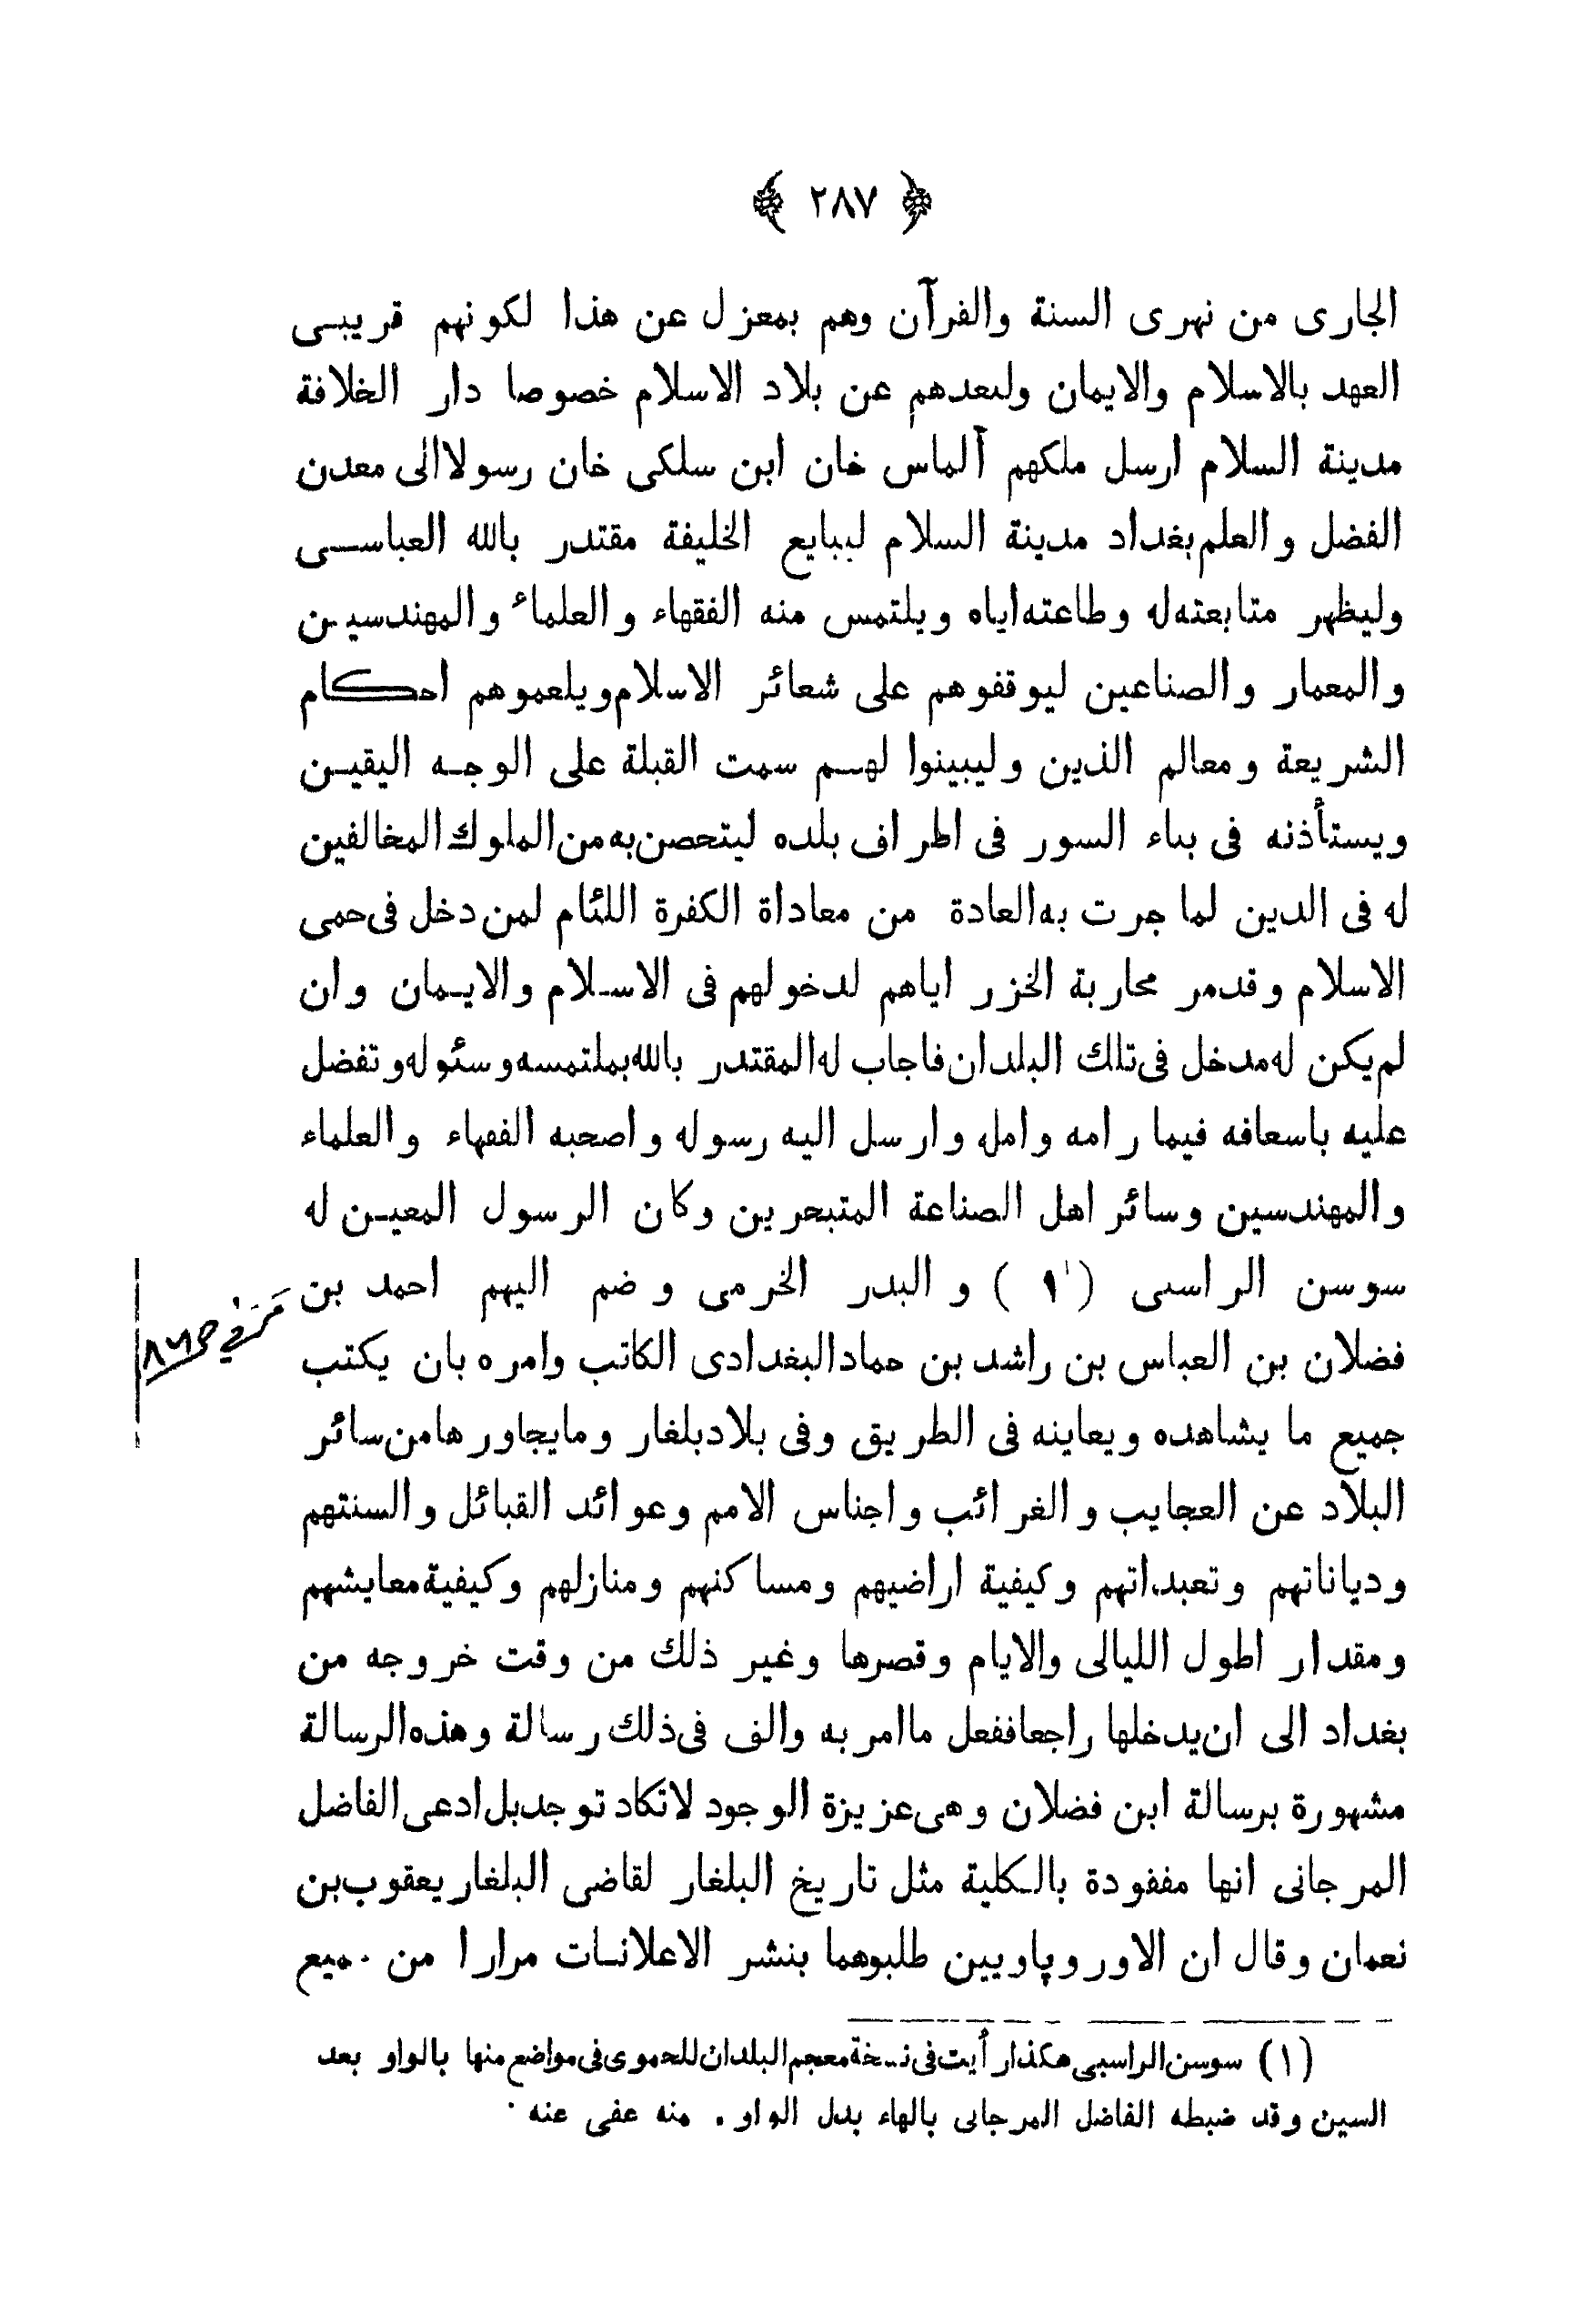 ﴿ ٢٨٧ ﴾
الجارى من نهرى السنة والفرآن وهم بمعزل عن هذا لكونهم قريبى
العهد بالاسلام والايمان ولبعدهم عن بلاد الاسلام خصوصا دار الخلافة
مدينة السلام ارسل ملكهم آلماس خان ابن سلكى خان رسولا الى معدن
الفضل والعلم بغداد مدينة السلام ليبايع الخليفة مقتدر بالله العباسى
وليظهر متابعته له وطاعته اياه ويلتمس منه الفقهاء والعلماء والمهندسين
والمعمار والصناعين ليوقفوهم على شعائر الاسلام ويلعموهم احكام
الشريعة ومعالم الذين وليبينوا لهم سمت القبلة على الوجه اليقين
ويستأذنه فى بناء السور فى اطراف بلده ليتحصن به من الملوك المخالفين
له فى الدين لما جرت به العادة من معاداة الكفرة اللئام لمن دخل فى حمى
الاسلام وقدمر محاربة الخزر اياهم لدخولهم فى الاسلام والايمان وان
لم يكن له مدخل فى تلك البلدان فاجاب له المقتدر بالله بملتمسه وسئوله وتفضل
عليه باسعافه فيما رامه وامله وارسل اليه رسوله واصحبه الفقهاء والعلماء
والمهندسين وسائر اهل الصناعة المتبحرين وكان الرسول المعين له
سوسن الراسبى (١) والبدر الخرمى وضم اليهم احمد بن
فضلان بن العباس بن راشد بن حماد البغدادى الكاتب وامره بان يكتب
جميع ما يشاهده ويعاينه فى الطريق وفى بلاد بلغار وما يجاورها من سائر
البلاد عن العجايب والغرائب واجناس الامم وعوائد القبائل والسنتهم
ودياناتهم وتعبداتهم وكيفية اراضيهم ومساكنهم ومنازلهم وكيفية معايشهم
ومقدار اطول الليالى والايام وقصرها وغير ذلك من وقت خروجه من
بغداد الى ان يدخلها راجعا ففعل ما امر به والف فى ذلك رسالة وهذه الرسالة
مشهورة برسالة ابن فضلان وهى عزيزة الوجود لاتكاد توجد بل ادعى الفاضل
المرجانى انها مفقودة بالكلية مثل تاريخ البلغار لقاضى البلغار يعقوب بن
نعمان وقال ان الاوروپاويين طلبوهما بنشر الاعلانات مرارا من جميع
(١) سوسن الراسبى هكذا رأيت فى نسخة معجم البلدان للحموى فى مواضع منها بالواو بعد
السين وقد ضبطه الفاضل المرجانى بالهاء بدل الواو . منه عفى عنه ·